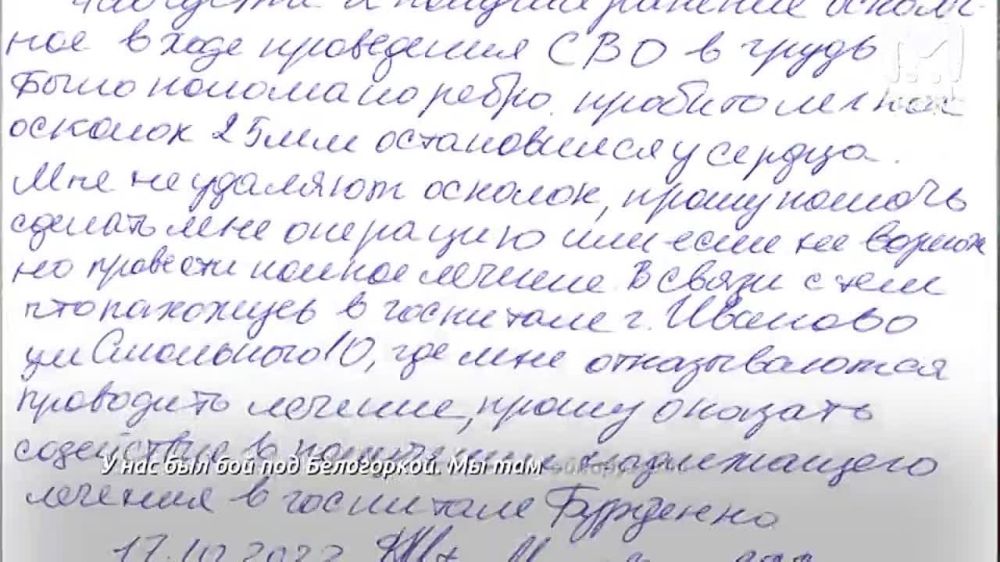 ранение осколоч-
ное в ходе проведения СВО в грудь
Было поломано ребро. пробито легкое
осколок 25мм остановился у сердца.
Мне не удаляют осколок, прошу помочь
сделать мне операцию или если не возмож
но провести полное лечение. В связи с тем
что нахожусь в госпитале г. Иваново
ул Смольного 10, где мне отказываются
проводить лечение, прошу оказать
содействие в надлежащего
У нас был бой под Белогоркой. Мы там
лечения в госпитале Бурденко
17.10.2022